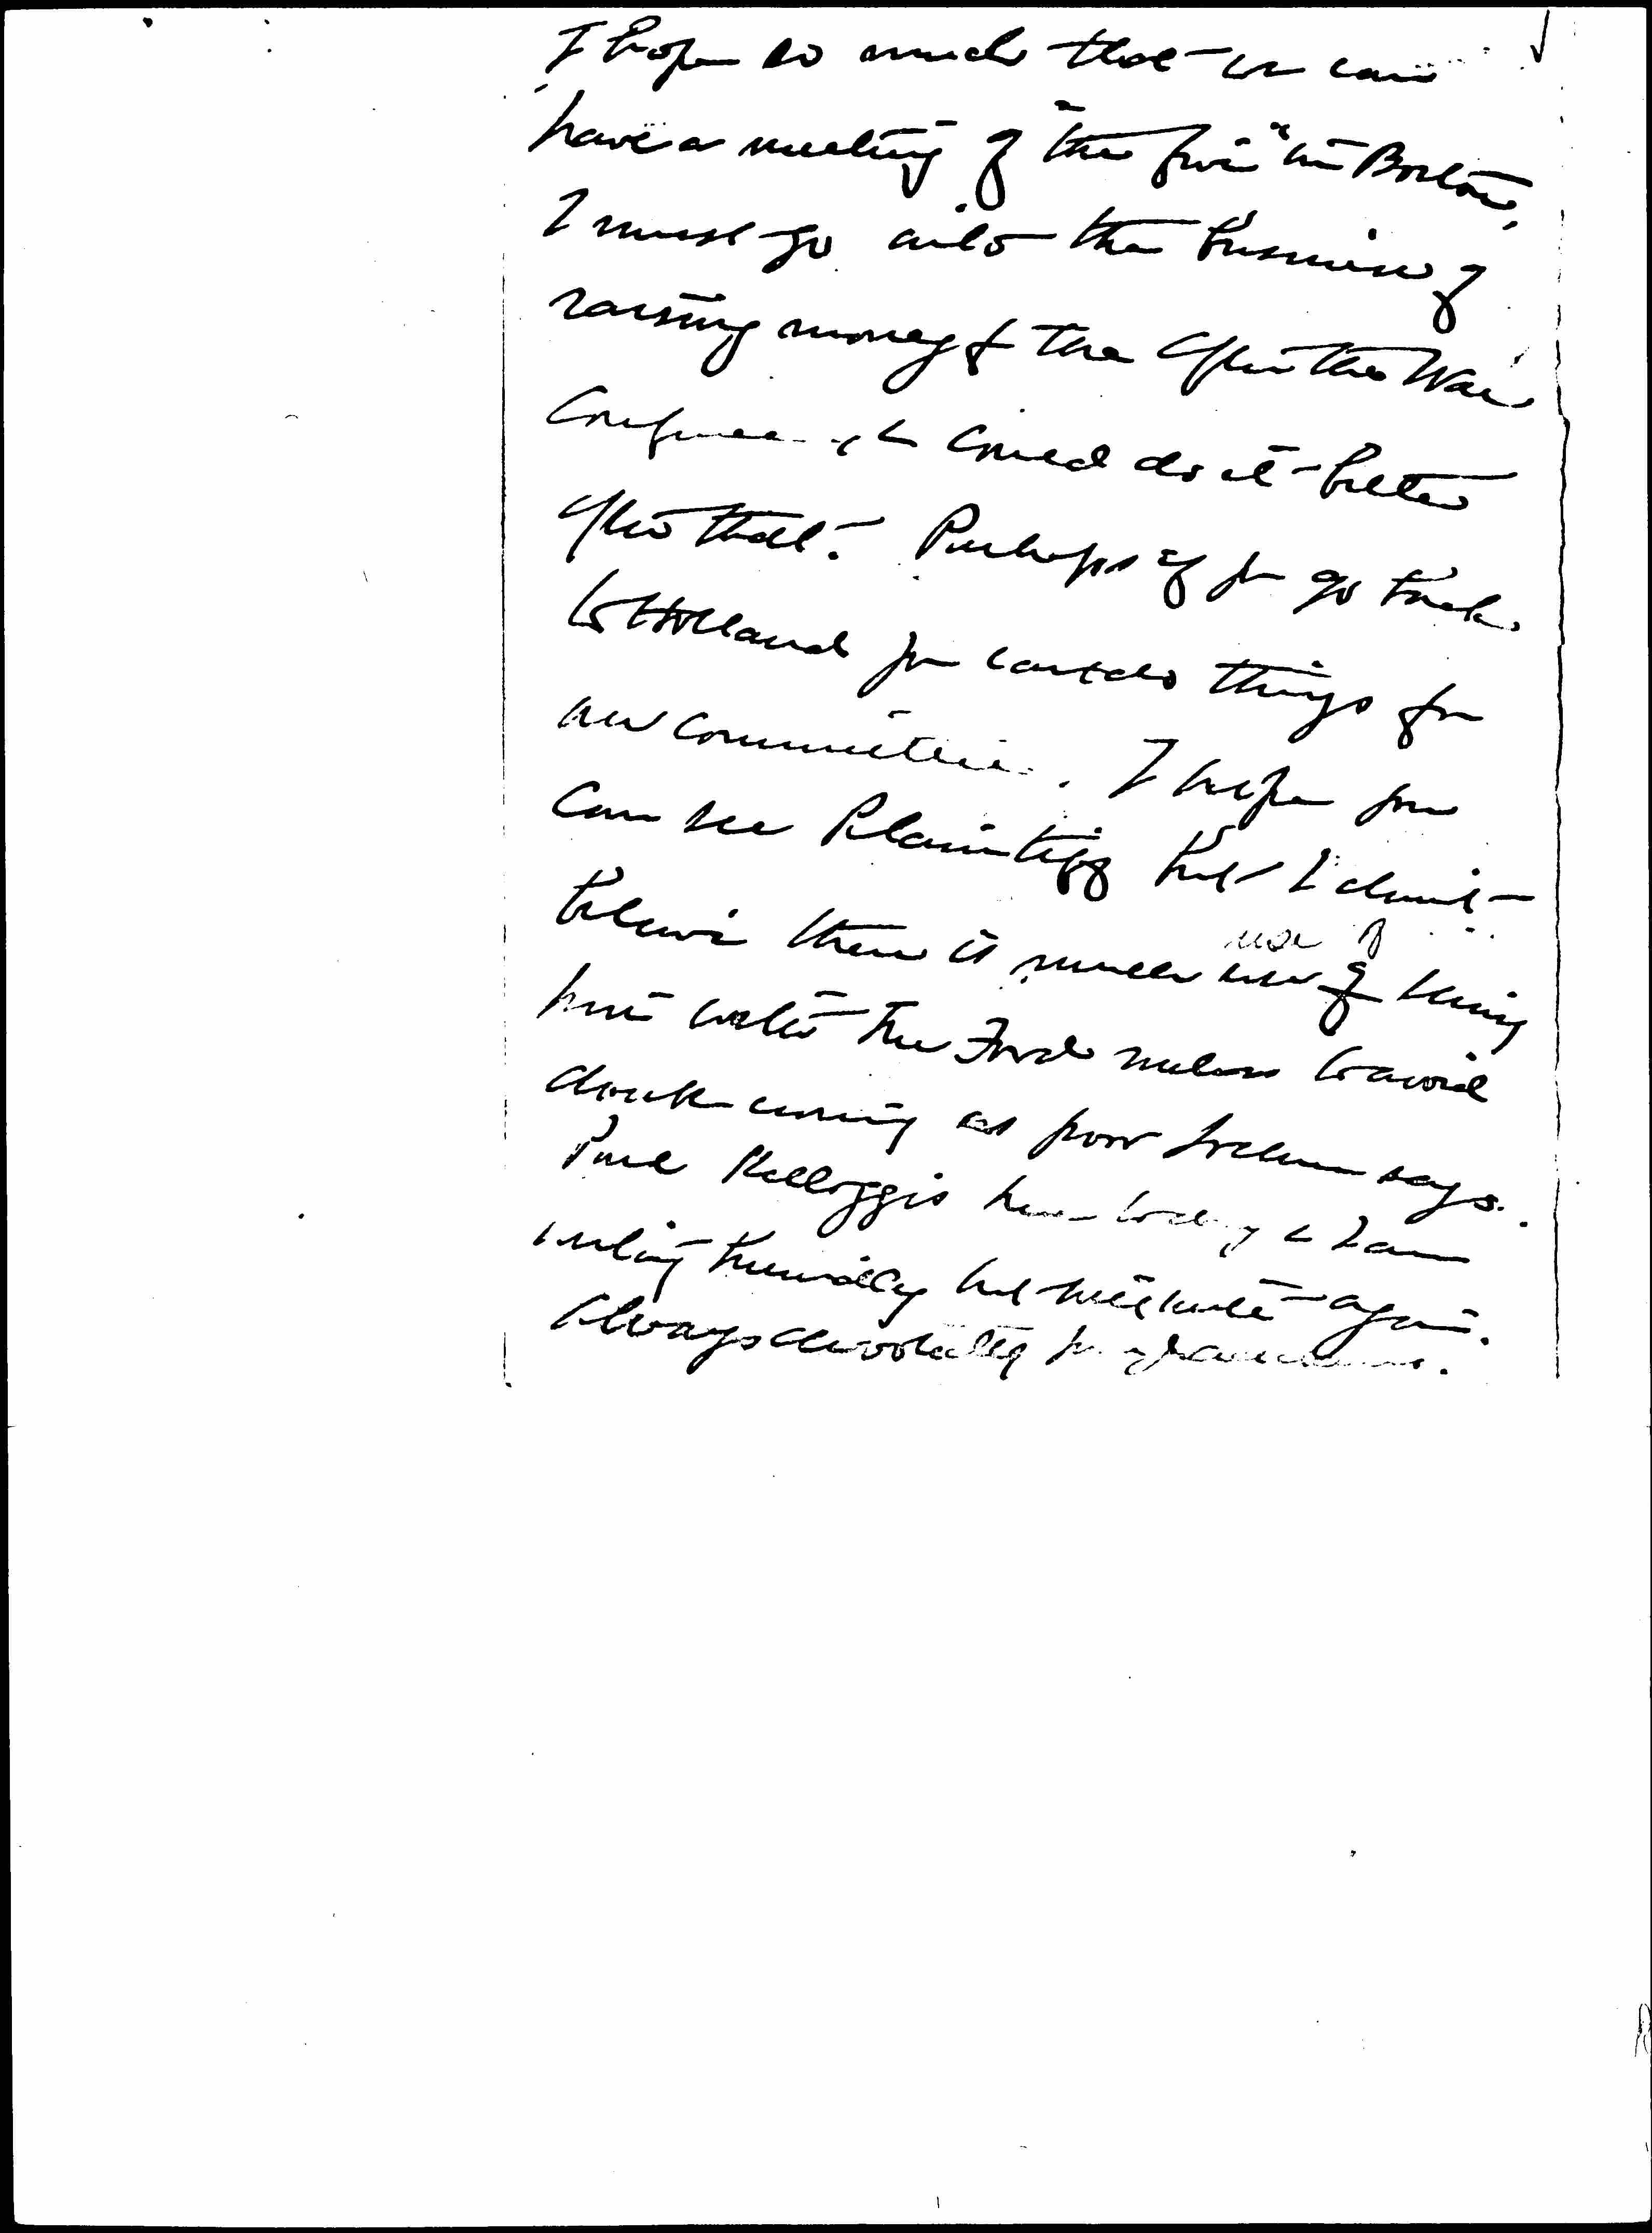 I hope so much that we can
have a meeting of "the five" in Boston,
I must go into the business of
raising money f the After the War
Conference & could do it better
after that. Perhaps if you go back
to Holland you can do things for
our committee. I hope you
can see Plaintiff but I don't
believe there is much use of being
use of
here with the Ford unless to avoid
as poor says.
Paul Kellogg is here today & I am
writing hurriedly but will write again.
Always devotedly yrs Jane Addams.